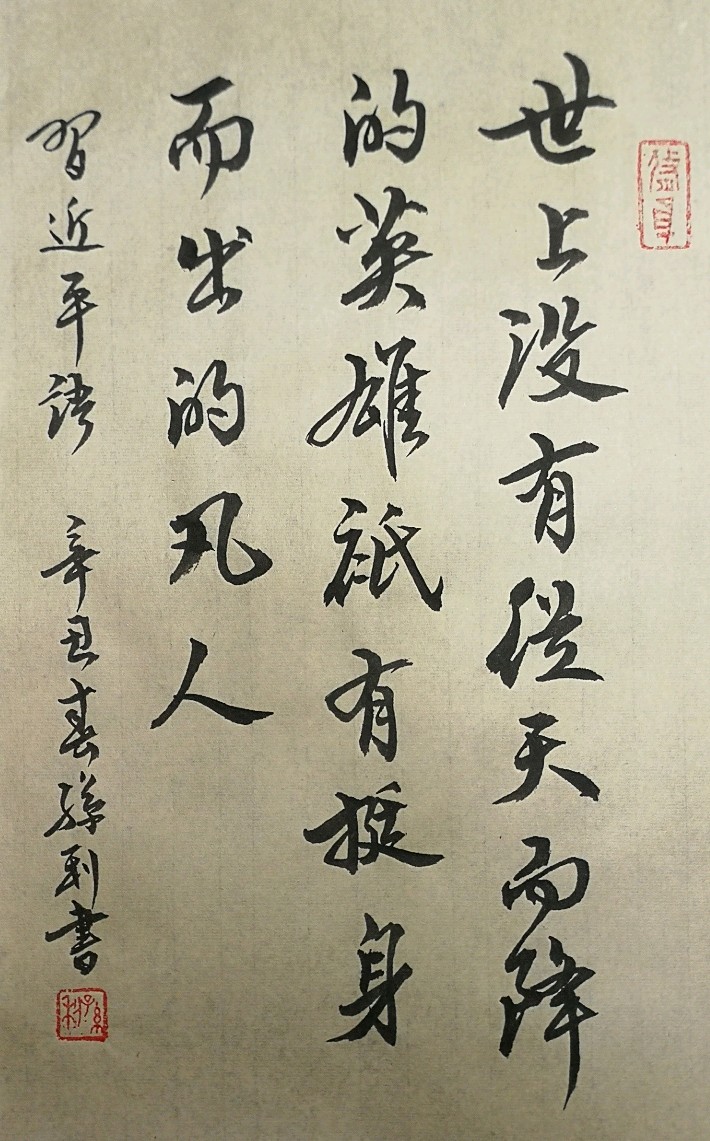 世上没有從天而降
的英雄祇有挺身
而出的凡人
習近平語 辛丑春孫利書
孫利